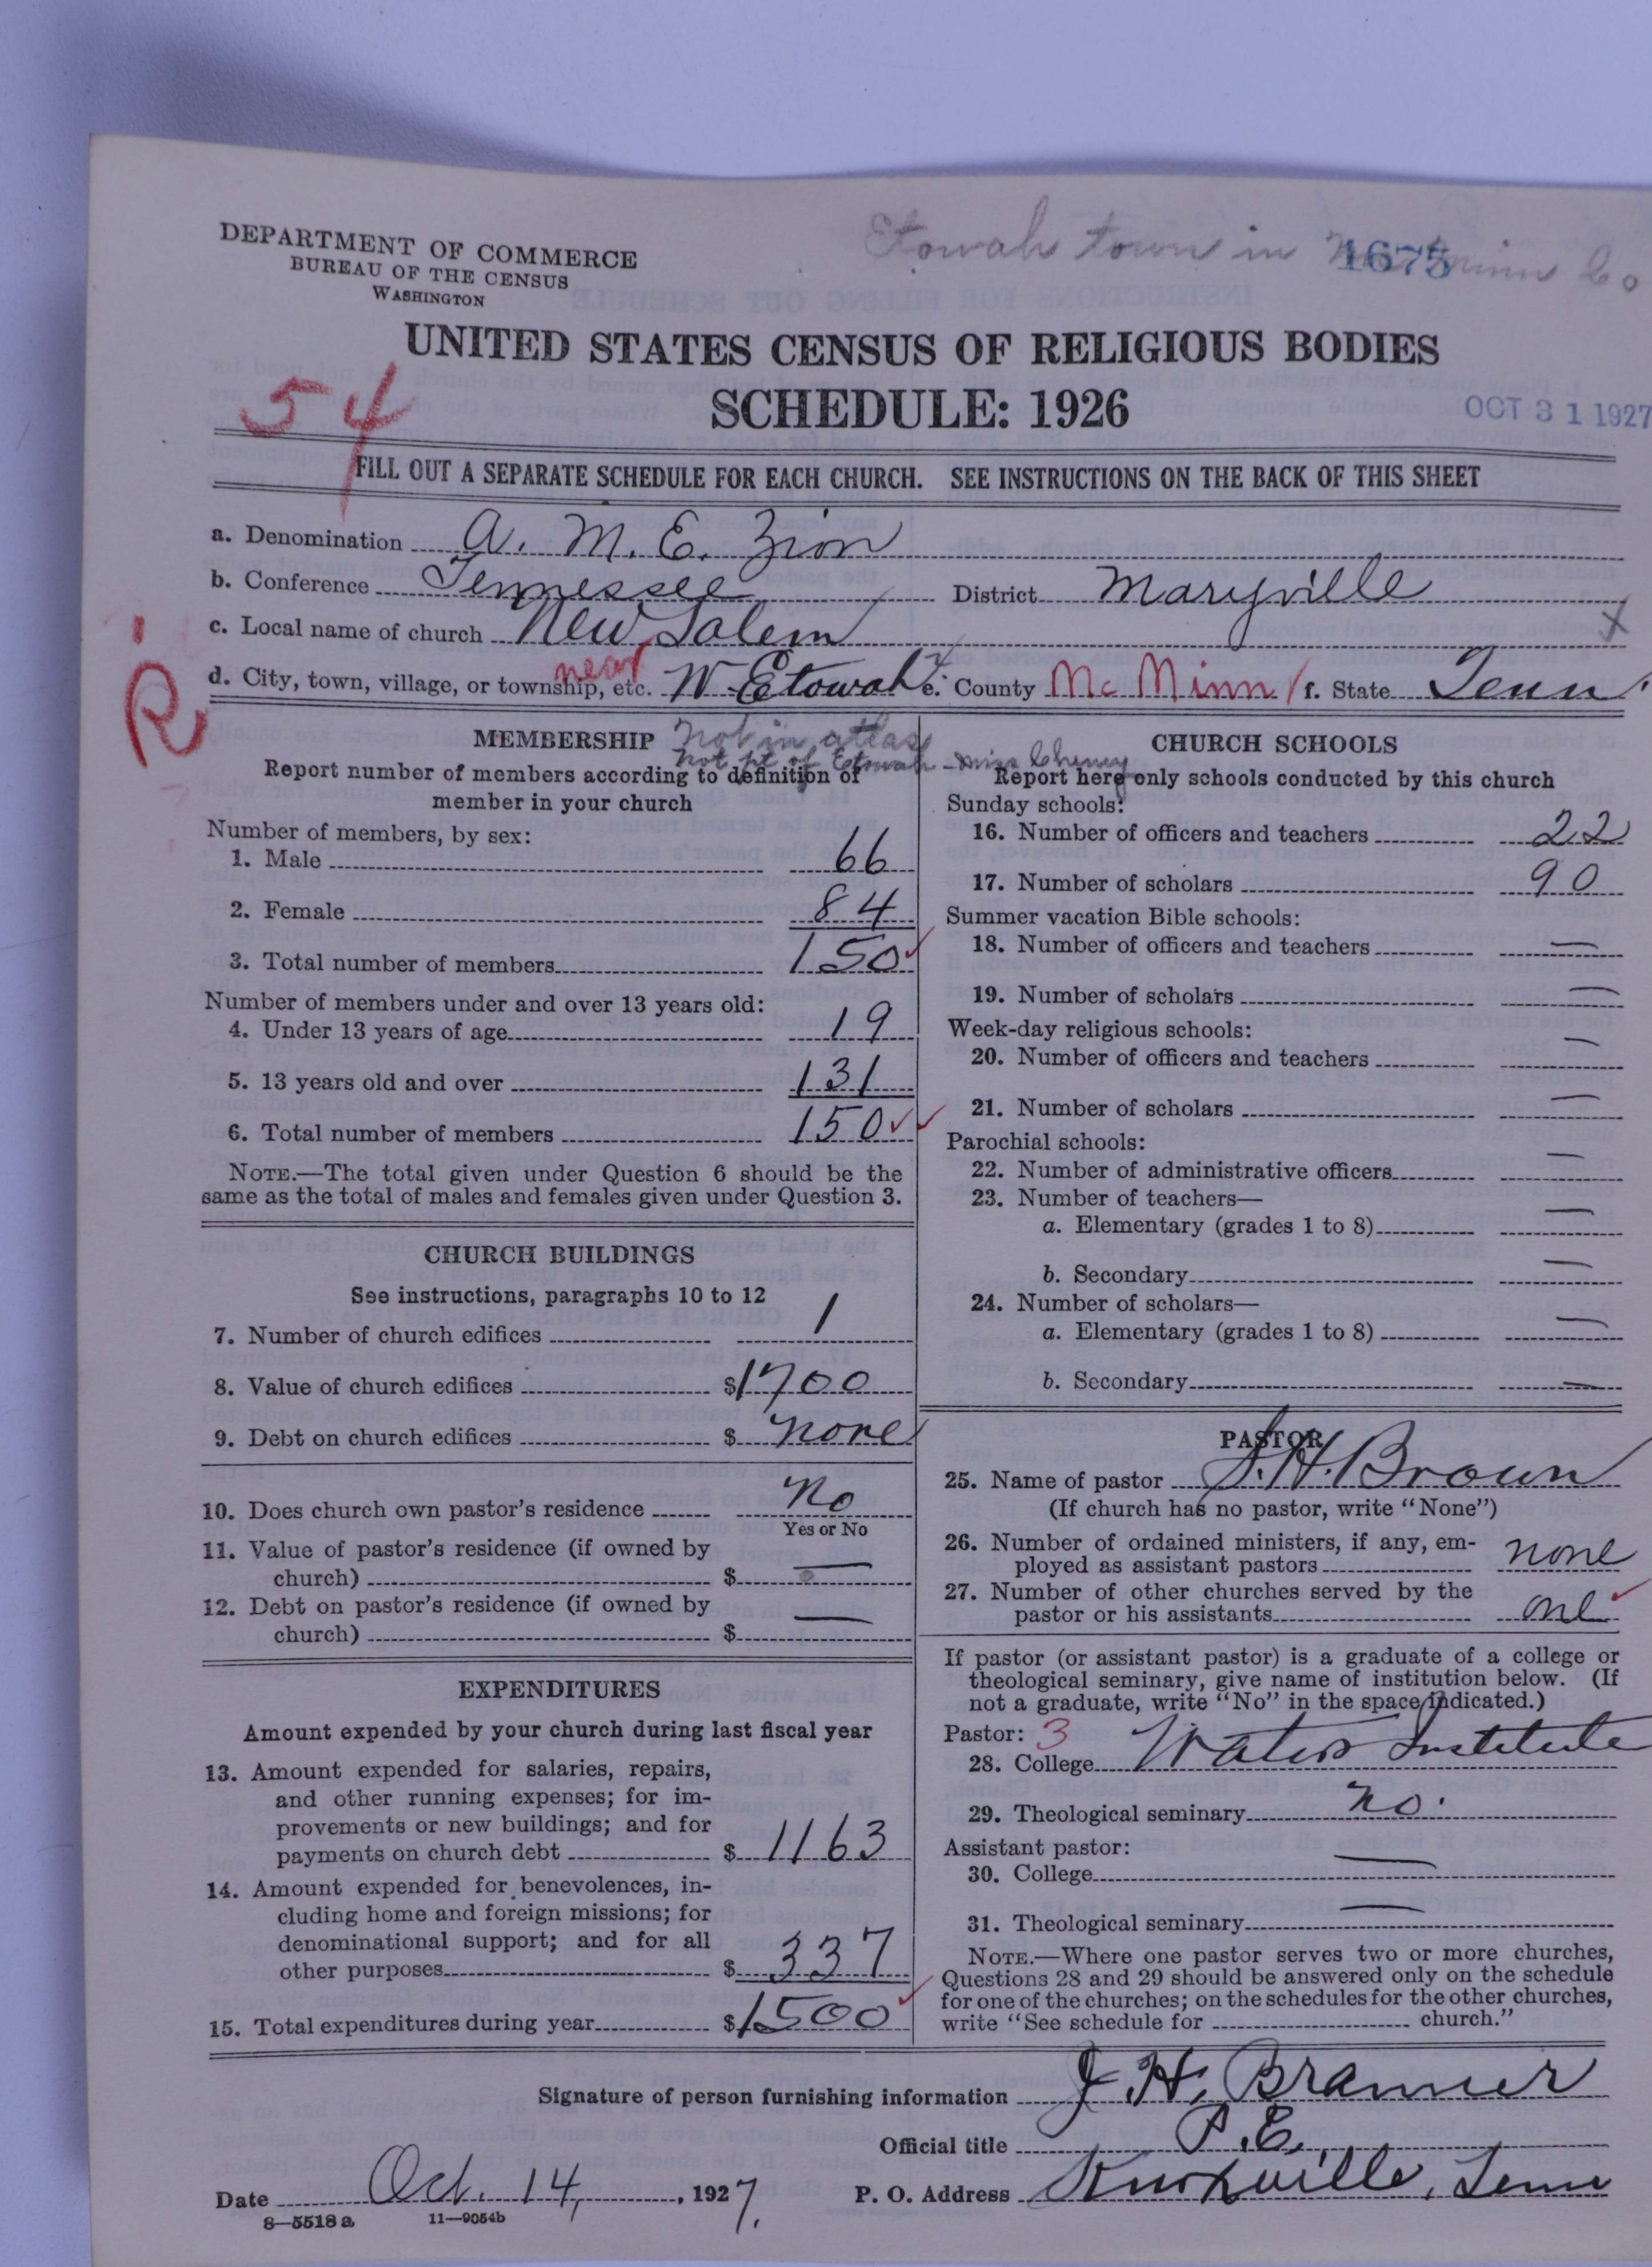 DEPARTMENT OF COMMERCE
BUREAU OF THE CENSUS
WASHINGTON
Etowah town in McMinn Co
1675
UNITED STATES CENSUS OF RELIGIOUS BODIES
SCHEDULE: 1926
54
OCT 31 1927
FILL OUT A SEPARATE SCHEDULE FOR EACH CHURCH. SEE INSTRUCTIONS ON THE BACK OF THIS SHEET
a. Denomination A. M. E. Zion
b. Conference Tennessee District Maryville
c. Local name of church New Salem
R
d. City, town, village, or township, etc. near W. Etowah e. County McMinn f. State Tenn.
MEMBERSHIP
Not in atlas
not pt of Etowah - Miss Cheney
Report number of members according to definition of
member in your church
Number of members, by sex:
1. Male 66
2. Female 84
3. Total number of members 150
Number of members under and over 13 years old:
4. Under 13 years of age 19
5. 13 years old and over 131
6. Total number of members 150
NOTE.—The total given under Question 6 should be the
same as the total of males and females given under Question 3.
CHURCH BUILDINGS
See instructions, paragraphs 10 to 12
7. Number of church edifices 1
8. Value of church edifices $1700
9. Debt on church edifices $ none
10. Does church own pastor's residence No
Yes or No
11. Value of pastor's residence (if owned by
church) $ —
12. Debt on pastor's residence (if owned by
church) $ —
EXPENDITURES
Amount expended by your church during last fiscal year
13. Amount expended for salaries, repairs,
and other running expenses; for im-
provements or new buildings; and for
payments on church debt $ 1163
14. Amount expended for benevolences, in-
cluding home and foreign missions; for
denominational support; and for all
other purposes $ 337
15. Total expenditures during year $1500
CHURCH SCHOOLS
Report here only schools conducted by this church
Sunday schools:
16. Number of officers and teachers 22
17. Number of scholars 90
Summer vacation Bible schools:
18. Number of officers and teachers —
19. Number of scholars —
Week-day religious schools:
20. Number of officers and teachers —
21. Number of scholars —
Parochial schools:
22. Number of administrative officers —
23. Number of teachers—
a. Elementary (grades 1 to 8) —
b. Secondary —
24. Number of scholars—
a. Elementary (grades 1 to 8) —
b. Secondary —
PASTOR
25. Name of pastor S. H. Brown
(If church has no pastor, write "None")
26. Number of ordained ministers, if any, em-
ployed as assistant pastors none
27. Number of other churches served by the
pastor or his assistants one
If pastor (or assistant pastor) is a graduate of a college or
theological seminary, give name of institution below. (If
not a graduate, write "No" in the space indicated.)
Pastor: 3
28. College Waters Institute
29. Theological seminary No.
Assistant pastor:
30. College —
31. Theological seminary —
NOTE.—Where one pastor serves two or more churches,
Questions 28 and 29 should be answered only on the schedule
for one of the churches; on the schedules for the other churches,
write "See schedule for church."
Signature of person furnishing information J. H. Branner
Official title P. E.
Date Oct. 14, 1927. P. O. Address Knoxville, Tenn
8—5518a 11—9054b